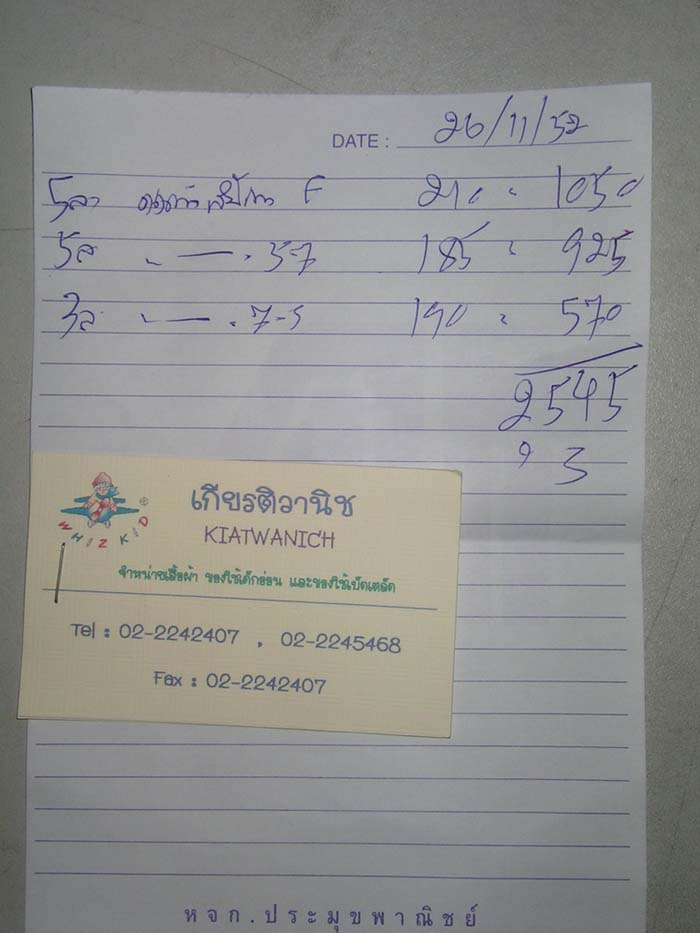 DATE : 26/11/52
5 210 " 1050
5 " — " 5-7 185 " 925
3 " — " 7-5 190 " 570
2545
3
เกียรติวานิช
®
WHIZ KID
KIATWANICH
จำหน่ายเสื้อผ้า ของใช้เด็กอ่อน และของใช้เบ็ดเตล็ด
Tel : 02-2242407 , 02-2245468
Fax : 02-2242407
หจก.ประมุขพาณิชย์